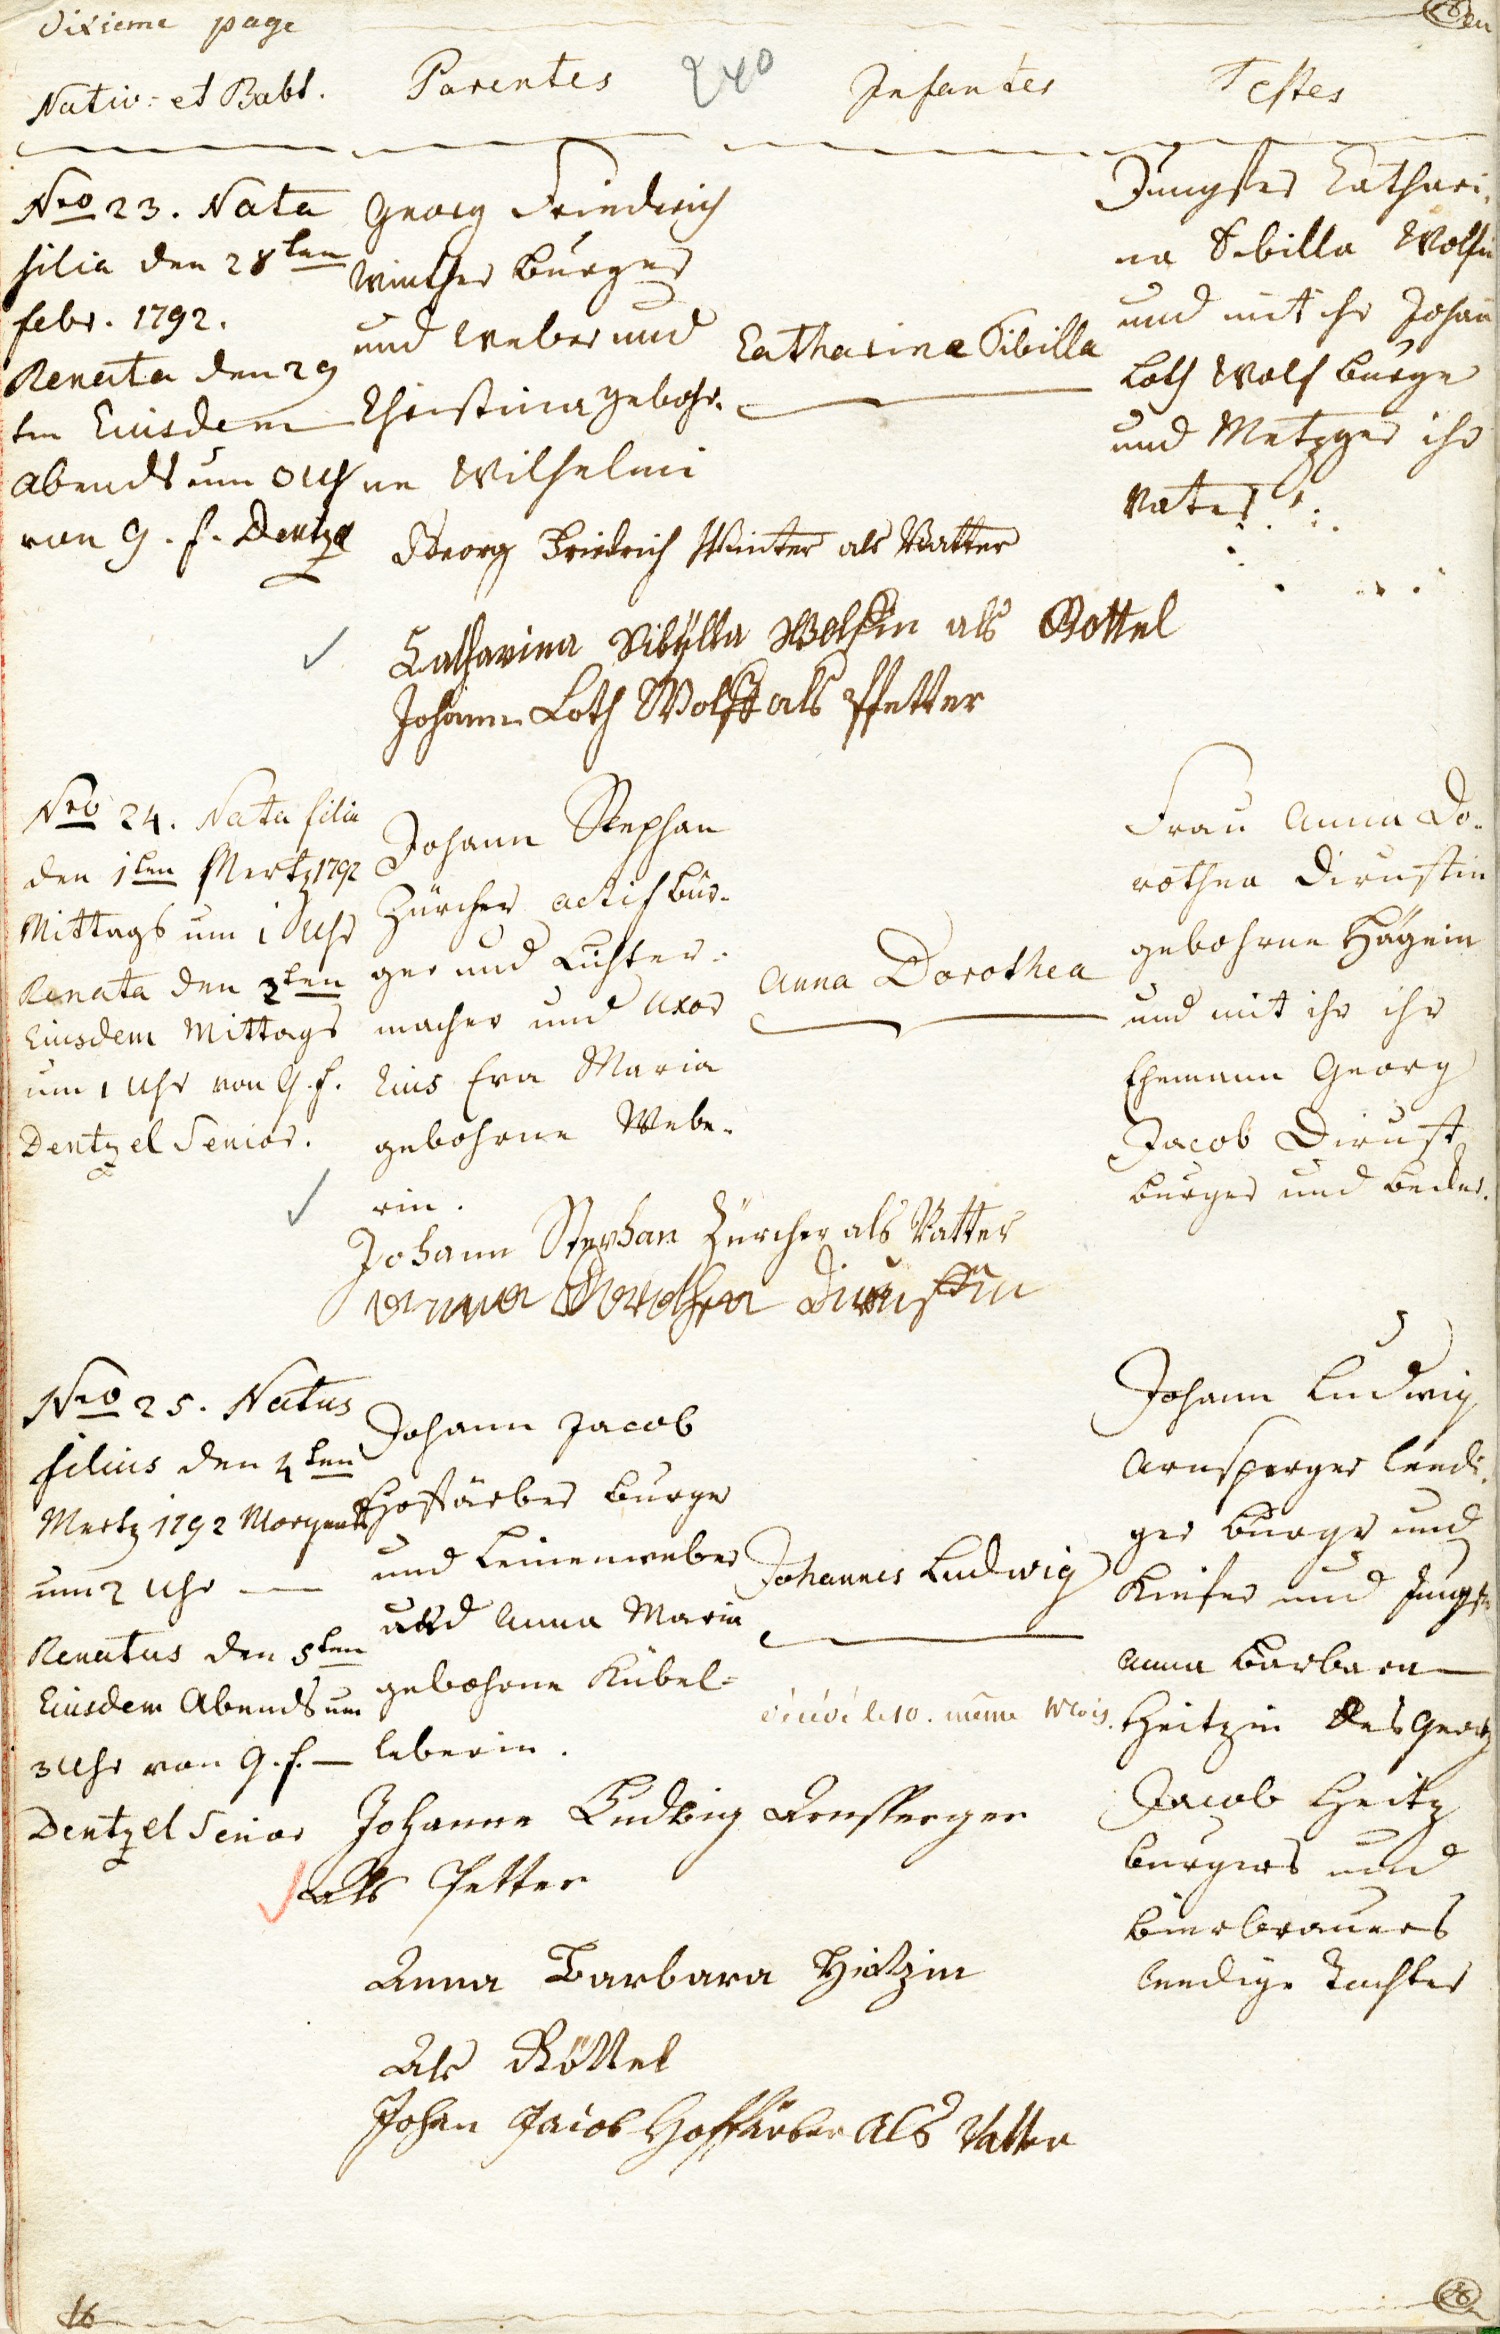 Dixieme page
240
Nativ: et Babt.
Parentes
Infantes
Testes
Nro 23. Nata
filia den 28ten
febr. 1792.
Renata den 29
ten Eiusdem
abends um 3 Uhr
von G. f. Dentzel
Georg Friedrich
Winther burger
und Weber und
Christina gebohr-
ne Wilhelmi
Catharina Sibilla
Jungfer Cathari-
na Sibilla Wolfin
und mit ihr Johan
Loth Wolf burger
und Metzger ihr
Vater.
Georg Friedrich Winter als Vatter
Catharina Sibÿlla Wolffin als Gottel
Johann Loth Wolff als Pfetter
Nro 24. Nata filia
den 1ten Mertz 1792
Mittags um 1 Uhr
Renata den 3ten
Eiusdem Mittags
um 1 Uhr von G. f.
Dentzel Senior.
Johann Stephan
Zürcher actif bur-
ger und Lichter-
macher und Uxor
Eius Eva Maria
gebohrne Webe-
rin.
Anna Dorothea
Frau Anna Do-
rothea Dirustin
gebohrne Hägein
und mit ihr ihr
Ehemann Georg
Jacob Dirust
burger und becker.
Johann Stephan Zürcher als Vatter
Anna Dorothea Dirustin
Nro 25. Natus
filius den 4ten
Mertz 1792 Morgends
um 2 Uhr
Renatus den 5ten
Eiusdem Abends um
3 Uhr von G. f.
Dentzel Senior
Johann Jacob
Hoffärber burger
und Leinenweber
und Anna Maria
gebohrne Kübel-
leberin.
Johannes Ludwig
décédé le 10. même Mois.
Johann Ludwig
Arnsperger leedi-
ger burger und
Kiefer und Jungfr
Anna Barbara
Heitzin des Georg
Jacob Heitz
burgers und
bierbrauers
leedige Tochter
Johanne Ludwig Arnsperger
als Petter
Anna Barbara Heitzin
als Göttel
Johan Jacob Hoffärber als Vatter
16